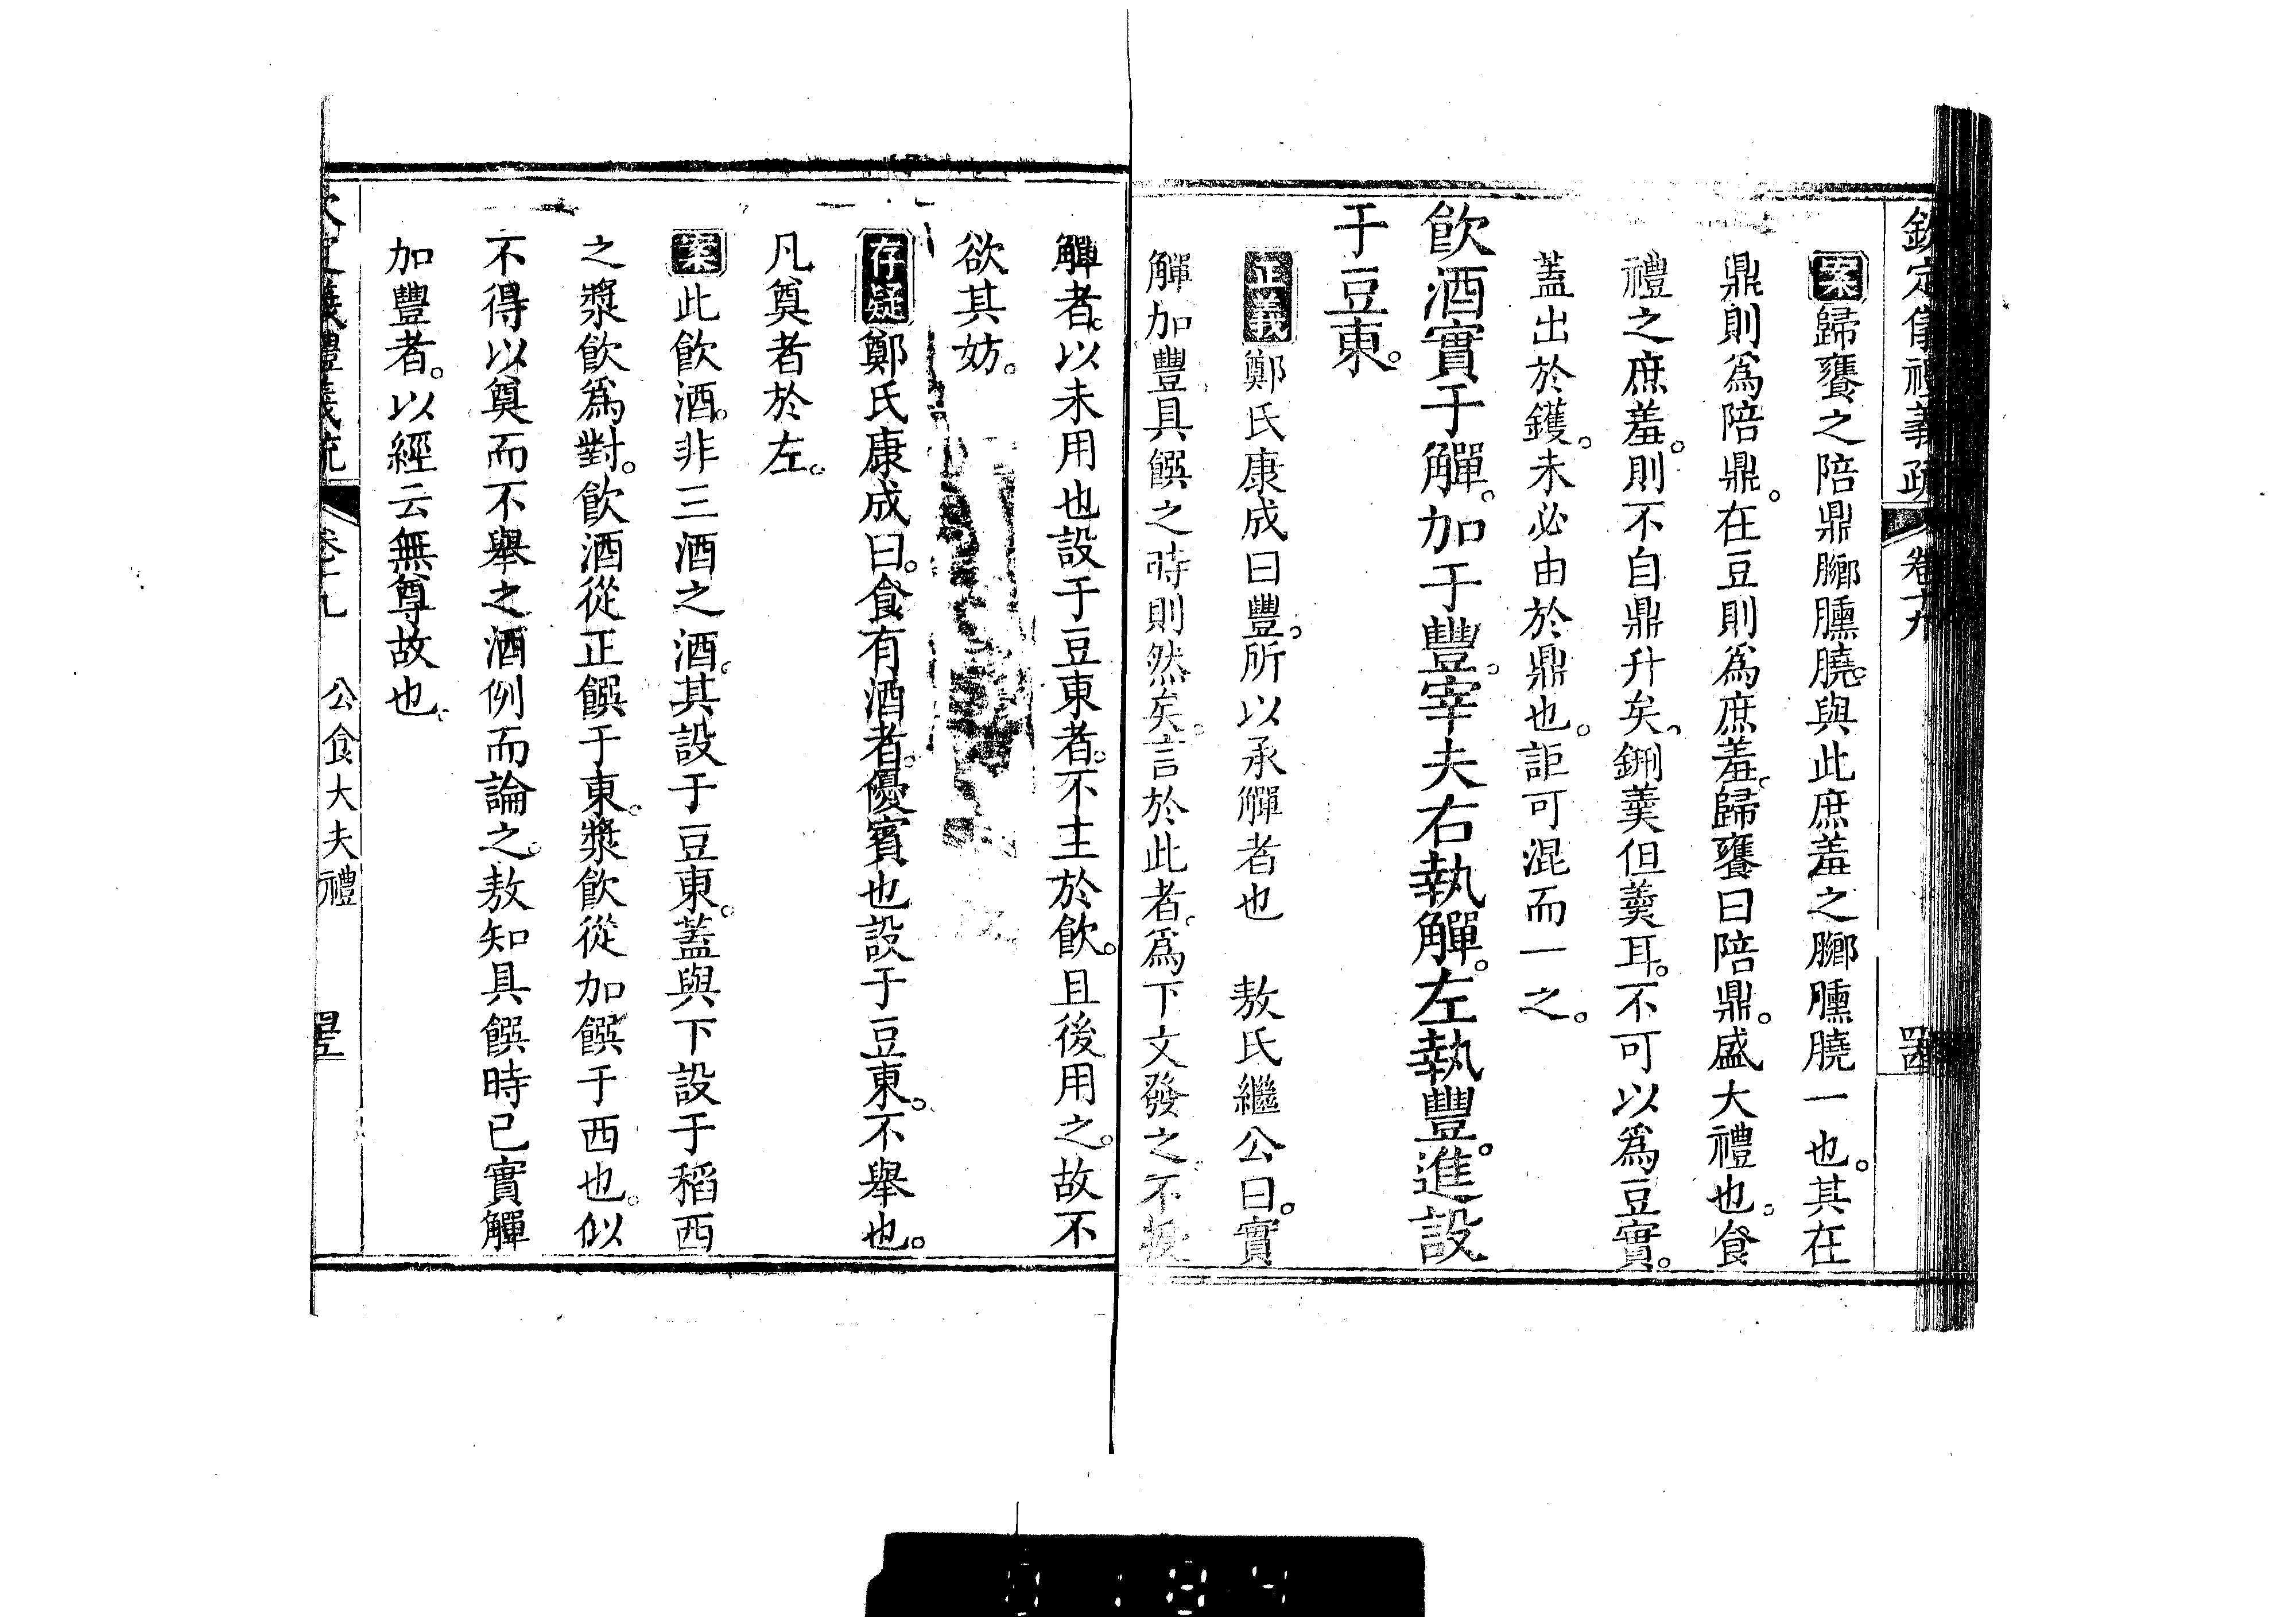 欽定儀禮義疏 卷十九 罢
案歸饔之陪鼎膷臐膮。與此庶羞之膷臐膮一也。其在
鼎則為陪鼎。在豆則為庶羞。歸饔曰陪鼎。盛大禮也。食
禮之庶羞。則不自鼎升矣。鉶羹但羹耳。不可以為豆實。
蓋出於鑊。未必由於鼎也。詎可混而一之。
飲酒實于觶。加于豐。宰夫右執觶。左執豐。進設
于豆東。
正義鄭氏康成曰豐。所以承觶者也 敖氏繼公曰。實
觶加豐。具饌之時則然矣。言於此者。為下文發之。不
觶者。以未用也設于豆東者。不主於飲。且後用之。故不
欲其妨。
存疑鄭氏康成曰。食有酒者。優賓也設于豆東。不舉也。
凡奠者於左。
案此飲酒。非三酒之酒。其設于豆東。蓋與下設于稻西
之漿飲為對。飲酒從正饌于東。漿飲從加饌于西也。似
不得以奠而不舉之酒例而論之。敖知具饌時已實觶
加豐者。以經云無尊故也。
欽定儀禮義疏 卷十九 公食大夫禮